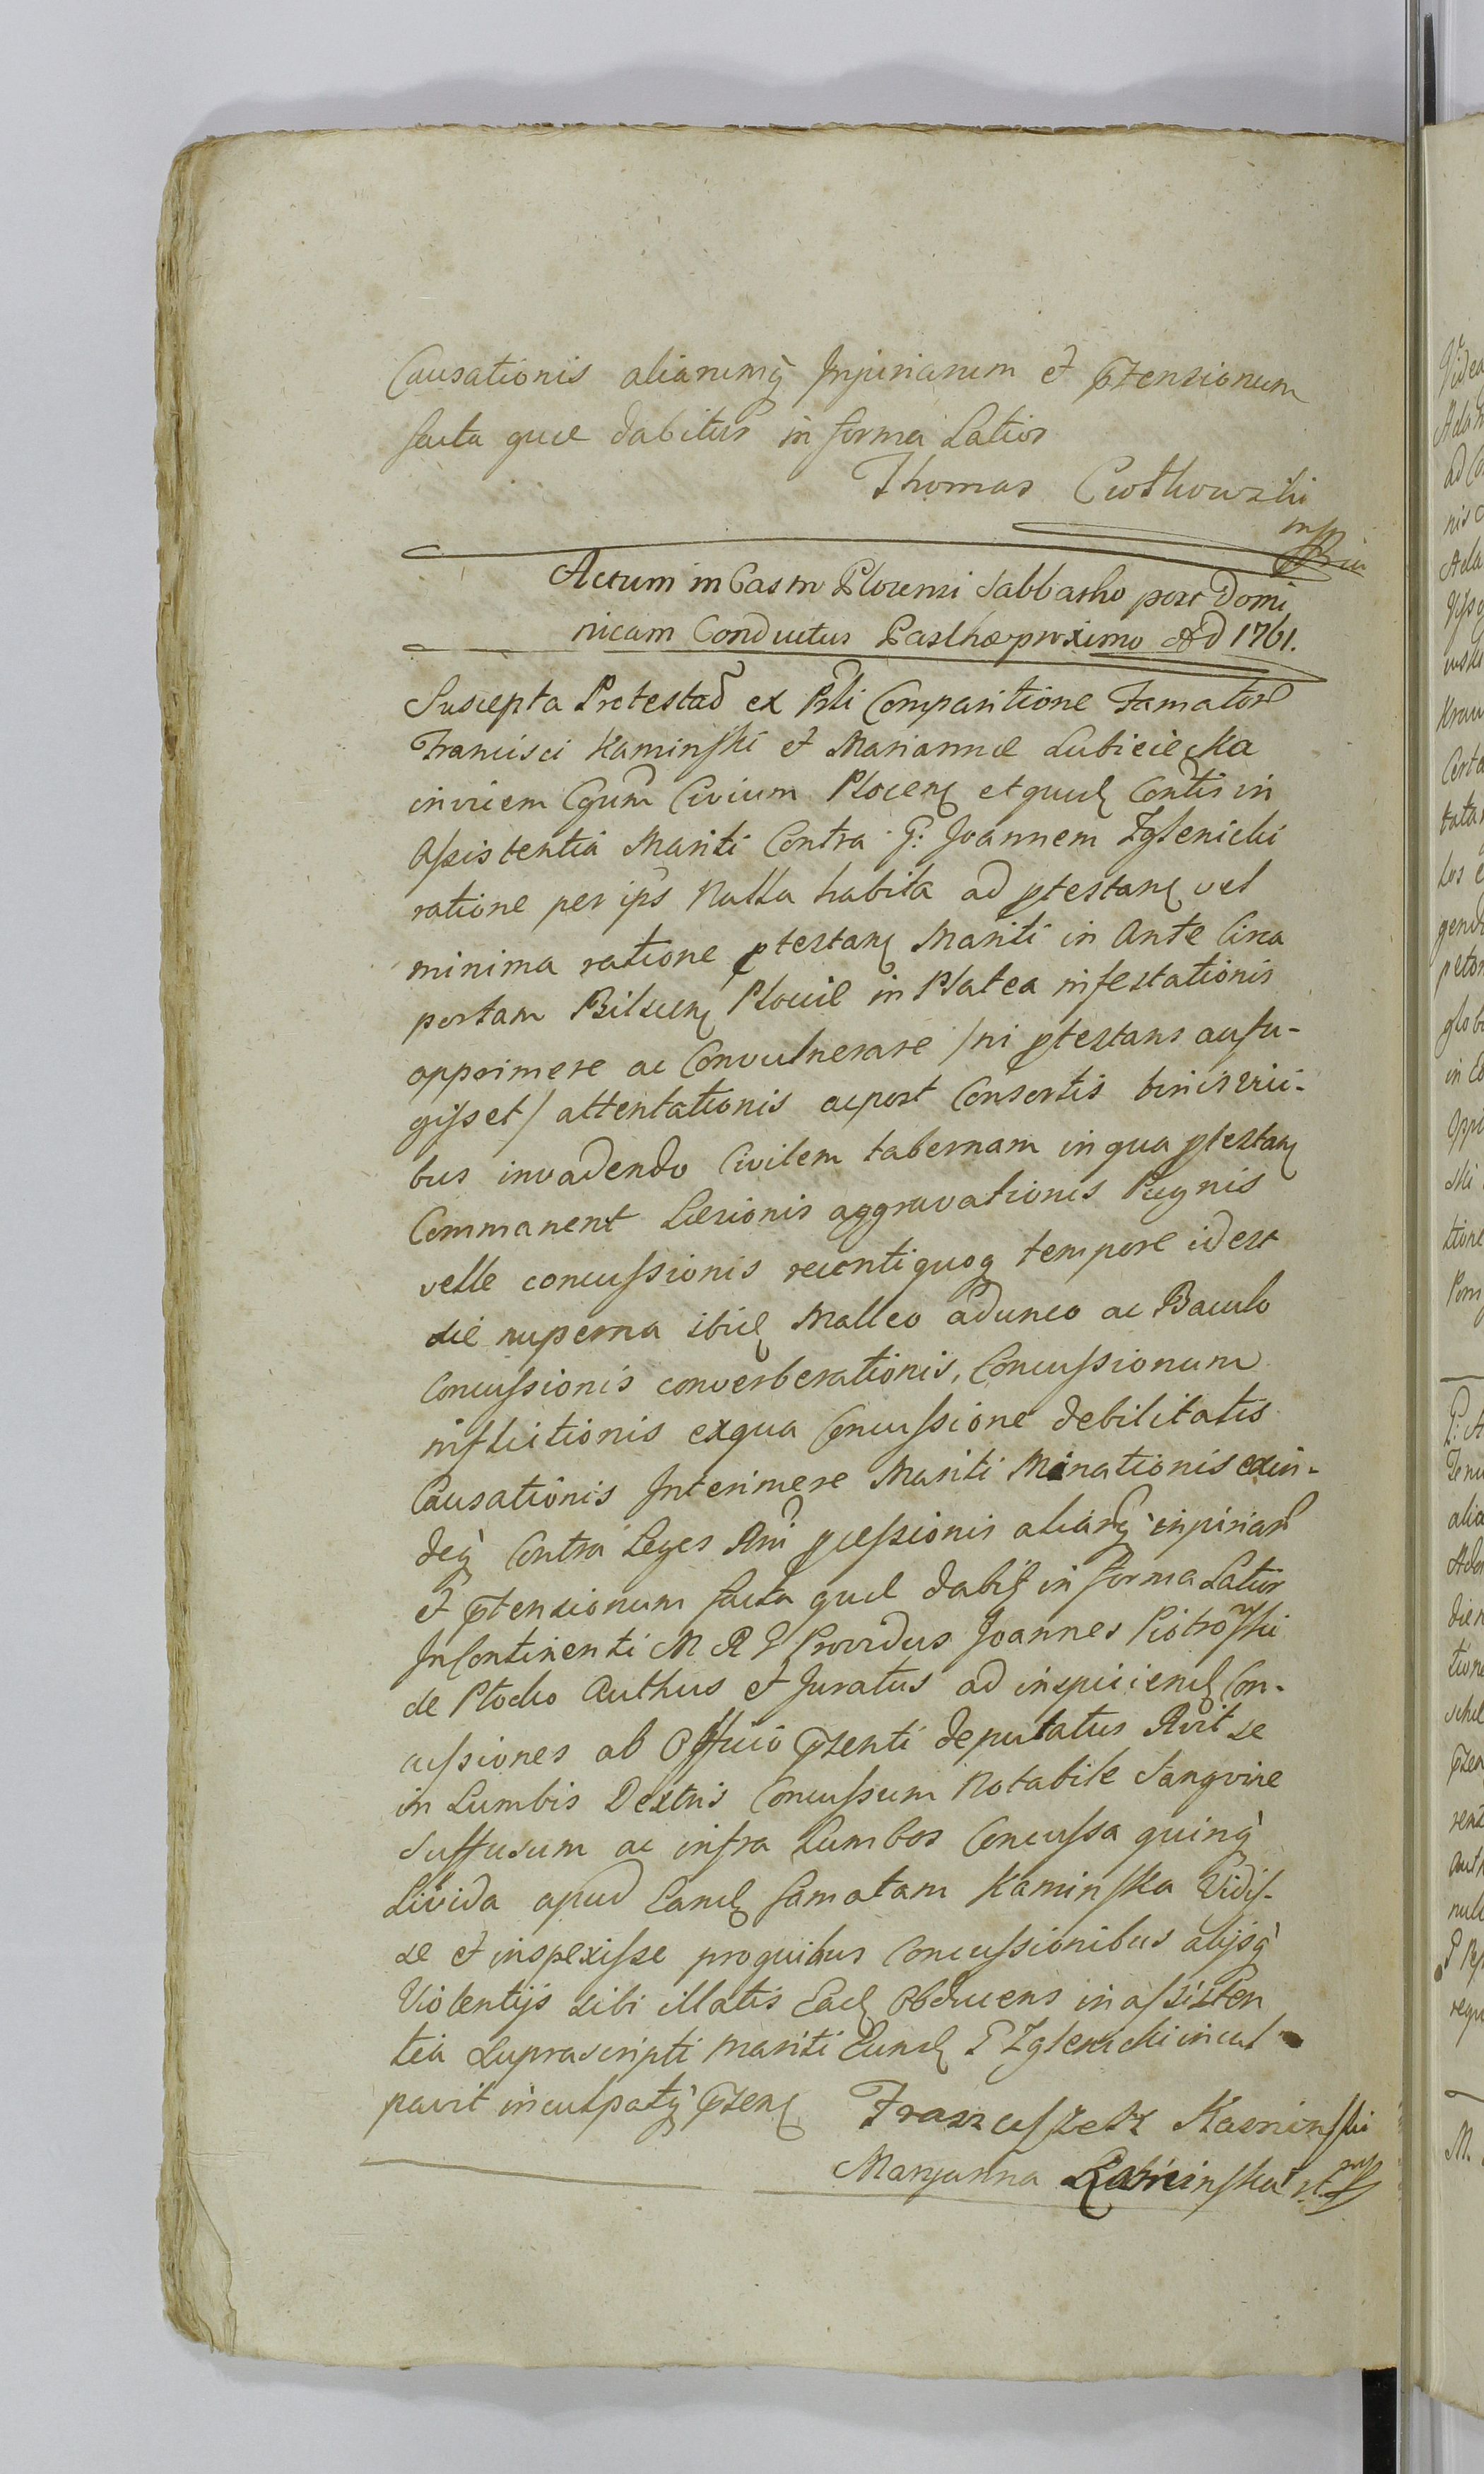 Causationis aliarumq̀ Injuriarum et ptensionum
facta quæ dabitur in forma Latior
Thomas Cwotkowski
mp
Actum in Castro Plocensi Sabbatho post Domi
nicam Conductus Paschæ proximo AD 1761.
Suscepta Protestaõ ex Psti Comparitione Famator
Francisci Kaminski et Mariannæ Lubiecięcka
invicem Cgum Civium Plocen et quid Contis in
Assistentia Mariti Contra G: Joannem Zglenicki
ratione per ips Nulla habita ad ptestan vel
minima ratione ptestan Mariti in Ante Circa
portam Bilscen Plociæ in Platea infestationis
opprimere ac Convulnerare /ni ptestans aufu-
gisset/ attentationis ac post Consortis binis vici-
bus invadendo Civilem tabernam in qua ptestan
Commanent Læsionis aggravationis Pugnis
velle concussionis recentiquoq tempore idest
die nuperna ibid Malleo adunco ac Baculo
Concussionis converberationis, Concussionum
inflictionis exqua Concussione debilitatis
Causationis Interimere Mariti Minationis exin-
deq̀ Contra Leges Rni pcessionis aliarq̀ injuriar
et ptensionum facta quæ dabit in forma Latior
In Continenti M R S Providus Joannes Piotrowski
de Plocko Authus et Juratus ad inspiciend Con-
cussiones ab Officio psenti deputatus Rvit se
in Lumbis Dextris Concussum Notabile Sangvine
Suffusum ac infra Lumbos Concussa quinq̀
Livida apud Eand famatam Kaminska Vidis-
se et inspexisse proquibus Concussionibus alijsq̀
Violentijs sibi illatis Ead Obducens in assisten
tia Suprascripti Mariti Eund G Zglenicki incul
pavit inculpatq̀ psen Franciszek Kaminski
Maryanna Kaminska mp